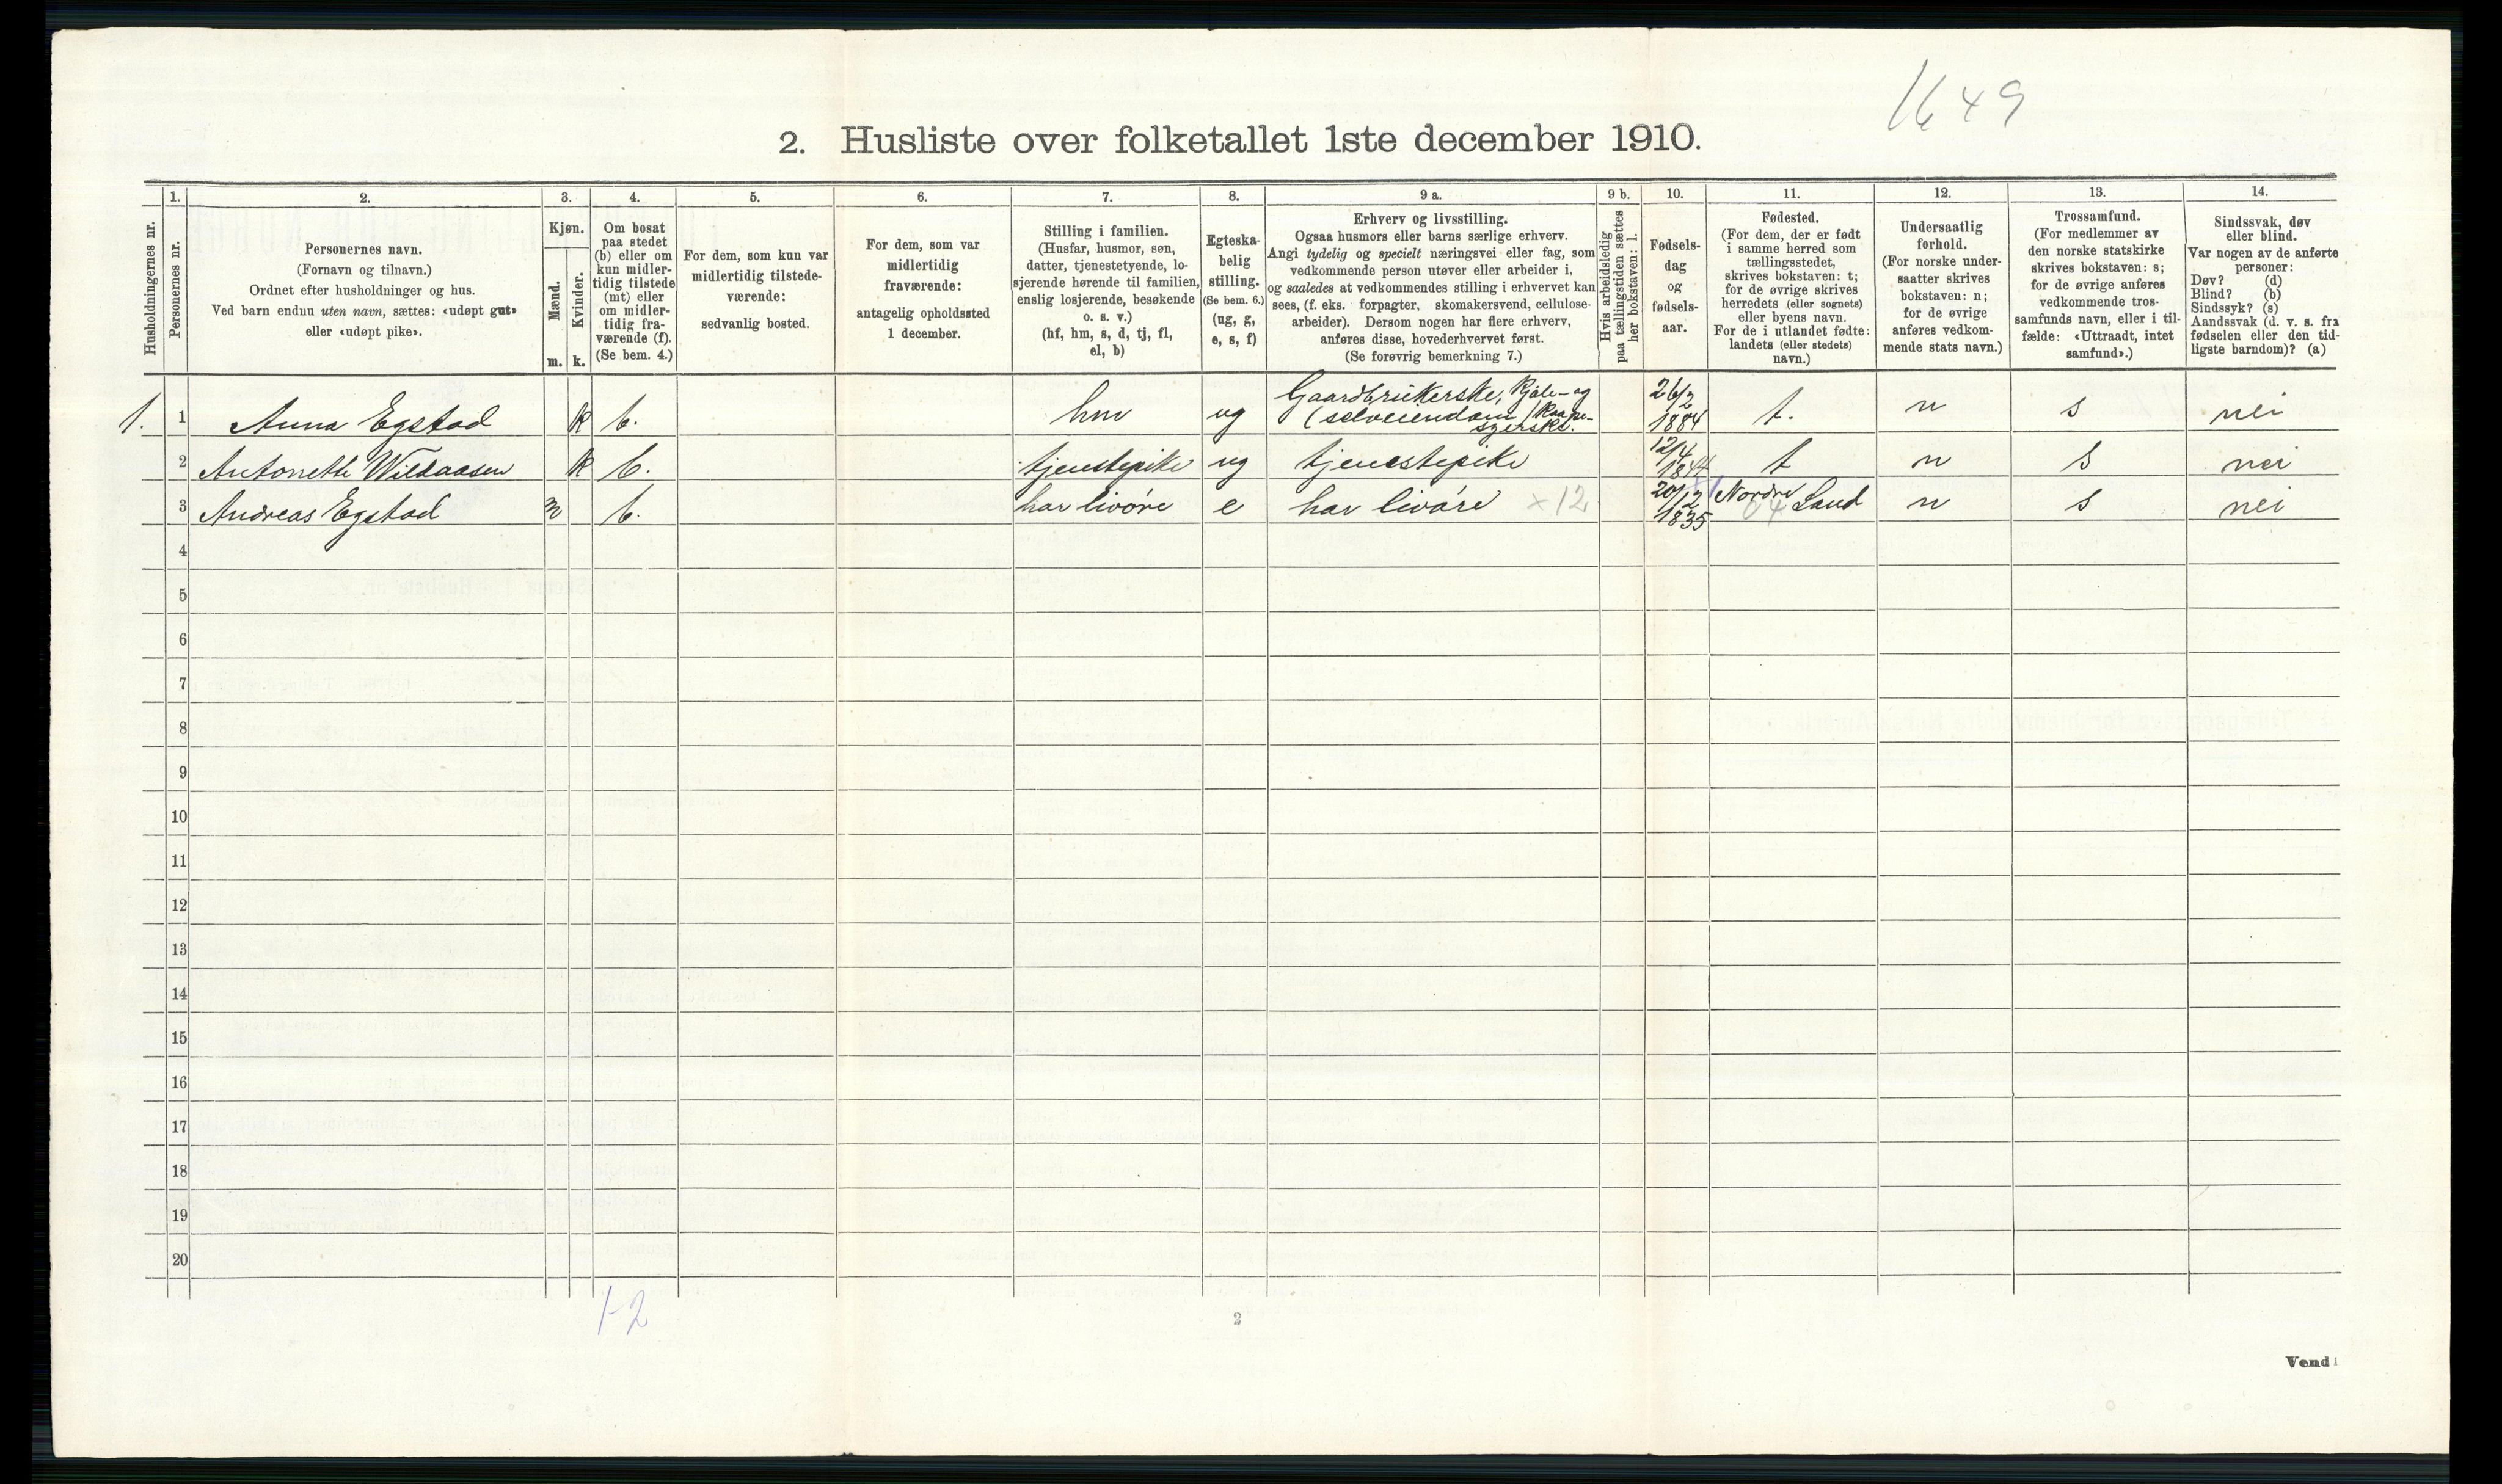 1649
2. Husliste over folketallet 1ste december 1910.
Husholdningernes nr.
1.
Personernes nr.
2.
Personernes navn.
(Fornavn og tilnavn.)
Ordnet efter husholdninger og hus.
Ved barn endnu uten navn, sættes: «udøpt gut»
eller «udøpt pike».
3.
Kjøn.
Mænd.
Kvinder.
m. k.
4.
Om bosat
paa stedet
(b) eller om
kun midler-
tidig tilstede
(mt) eller
om midler-
tidig fra-
værende (f).
(Se bem. 4.)
5.
For dem, som kun var
midlertidig tilstede-
værende:
sedvanlig bosted.
6.
For dem, som var
midlertidig
fraværende:
antagelig opholdssted
1 december.
7.
Stilling i familien.
(Husfar, husmor, søn,
datter, tjenestetyende, lo-
sjerende hørende til familien,
enslig losjerende, besøkende
o. s. v.)
(hf, hm, s, d, tj, fl,
el, b)
8.
Egteska-
belig
stilling.
(Se bem. 6.)
(ug, g,
e, s, f)
9 a.
Erhverv og livsstilling.
Ogsaa husmors eller barns særlige erhverv.
Angi tydelig og specielt næringsvei eller fag, som
vedkommende person utøver eller arbeider i,
og saaledes at vedkommendes stilling i erhvervet kan
sees, (f. eks. forpagter, skomakersvend, cellulose-
arbeider). Dersom nogen har flere erhverv,
anføres disse, hovederhvervet først.
(Se forøvrig bemerkning 7.)
9 b.
Hvis arbeidsledig
paa tællingstiden sættes
her bokstaven: l.
10.
Fødsels-
dag
og
fødsels-
aar.
11.
Fødested.
(For dem, der er født
i samme herred som
tællingsstedet,
skrives bokstaven: t;
for de øvrige skrives
herredets (eller sognets)
eller byens navn.
For de i utlandet fødte:
landets (eller stedets)
navn.)
12.
Undersaatlig
forhold.
(For norske under-
saatter skrives
bokstaven: n;
for de øvrige
anføres vedkom-
mende stats navn.)
13.
Trossamfund.
(For medlemmer av
den norske statskirke
skrives bokstaven: s;
for de øvrige anføres
vedkommende tros-
samfunds navn, eller i til-
fælde: «Uttraadt, intet
samfund».)
14.
Sindssvak, døv
eller blind.
Var nogen av de anførte
personer:
Døv? (d)
Blind? (b)
Sindssyk? (s)
Aandssvak (d. v. s. fra
fødselen eller den tid-
ligste barndom)? (a)
1. 1 Anna Egstad k b. hm ug Gaardbrukerske, Kjole- og (selveiendom) 26/2 1884 t. n s nei
2 Antonette k b. tjenestepike ug tjenestepike 12/4 t n s nei
3 Andreas Egstad m b. har livøre e har livøre x12 20/12 1835 Nordre Land 04 n s nei
4
5
6
7
8
9
10
11
12
13
14
15
16
17
18
19
20
1-2
2
Vend